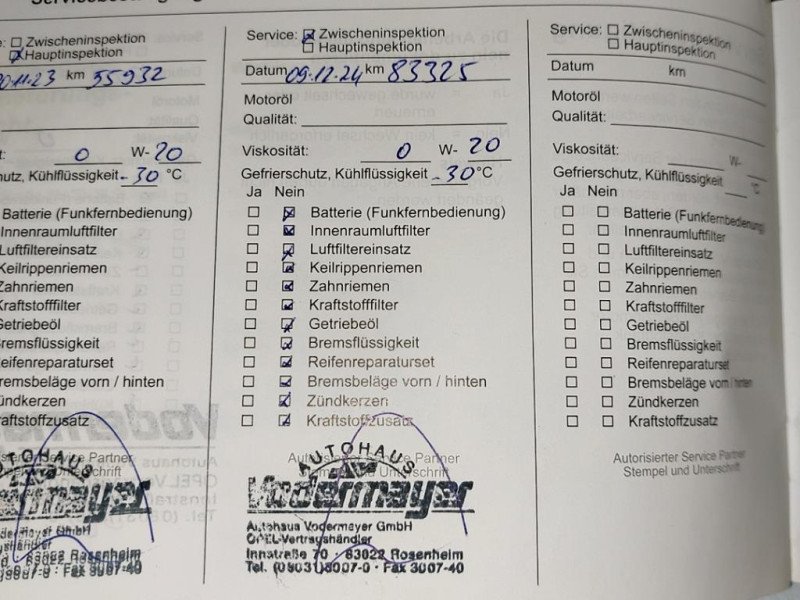 : ☐ Zwischeninspektion
☒ Hauptinspektion
0.11.23 km 55932
: 0 W-20
hutz, Kühlflüssigkeit -30 °C
Batterie (Funkfernbedienung)
Innenraumluftfilter
Luftfiltereinsatz
Keilrippenriemen
Zahnriemen
Kraftstofffilter
Getriebeöl
Bremsflüssigkeit
Reifenreparaturset
Bremsbeläge vorn / hinten
Zündkerzen
Kraftstoffzusatz
Service Partner
AUTOHAUS
Vodermayer GmbH
83022 Rosenheim
Fax 3007-40
Service: ☒ Zwischeninspektion
☐ Hauptinspektion
Datum 09.12.24 km 83325
Motoröl
Qualität:
Viskosität: 0 W-20
Gefrierschutz, Kühlflüssigkeit -30 °C
Ja Nein
☐ ☒ Batterie (Funkfernbedienung)
☐ ☒ Innenraumluftfilter
☐ ☒ Luftfiltereinsatz
☐ ☒ Keilrippenriemen
☐ ☒ Zahnriemen
☐ ☒ Kraftstofffilter
☐ ☒ Getriebeöl
☐ ☒ Bremsflüssigkeit
☐ ☒ Reifenreparaturset
☐ ☒ Bremsbeläge vorn / hinten
☐ ☒ Zündkerzen
☐ ☒ Kraftstoffzusatz
Service Partner
AUTOHAUS
Vodermayer
Autohaus Vodermayer GmbH
OPEL-Vertragshändler
Innstraße 70 · 83022 Rosenheim
Tel. (08031)3007-0 · Fax 3007-40
Service: ☐ Zwischeninspektion
☐ Hauptinspektion
Datum km
Motoröl
Qualität:
Viskosität: W-
Gefrierschutz, Kühlflüssigkeit °C
Ja Nein
☐ ☐ Batterie (Funkfernbedienung)
☐ ☐ Innenraumluftfilter
☐ ☐ Luftfiltereinsatz
☐ ☐ Keilrippenriemen
☐ ☐ Zahnriemen
☐ ☐ Kraftstofffilter
☐ ☐ Getriebeöl
☐ ☐ Bremsflüssigkeit
☐ ☐ Reifenreparaturset
☐ ☐ Bremsbeläge vorn / hinten
☐ ☐ Zündkerzen
☐ ☐ Kraftstoffzusatz
Autorisierter Service Partner
Stempel und Unterschrift